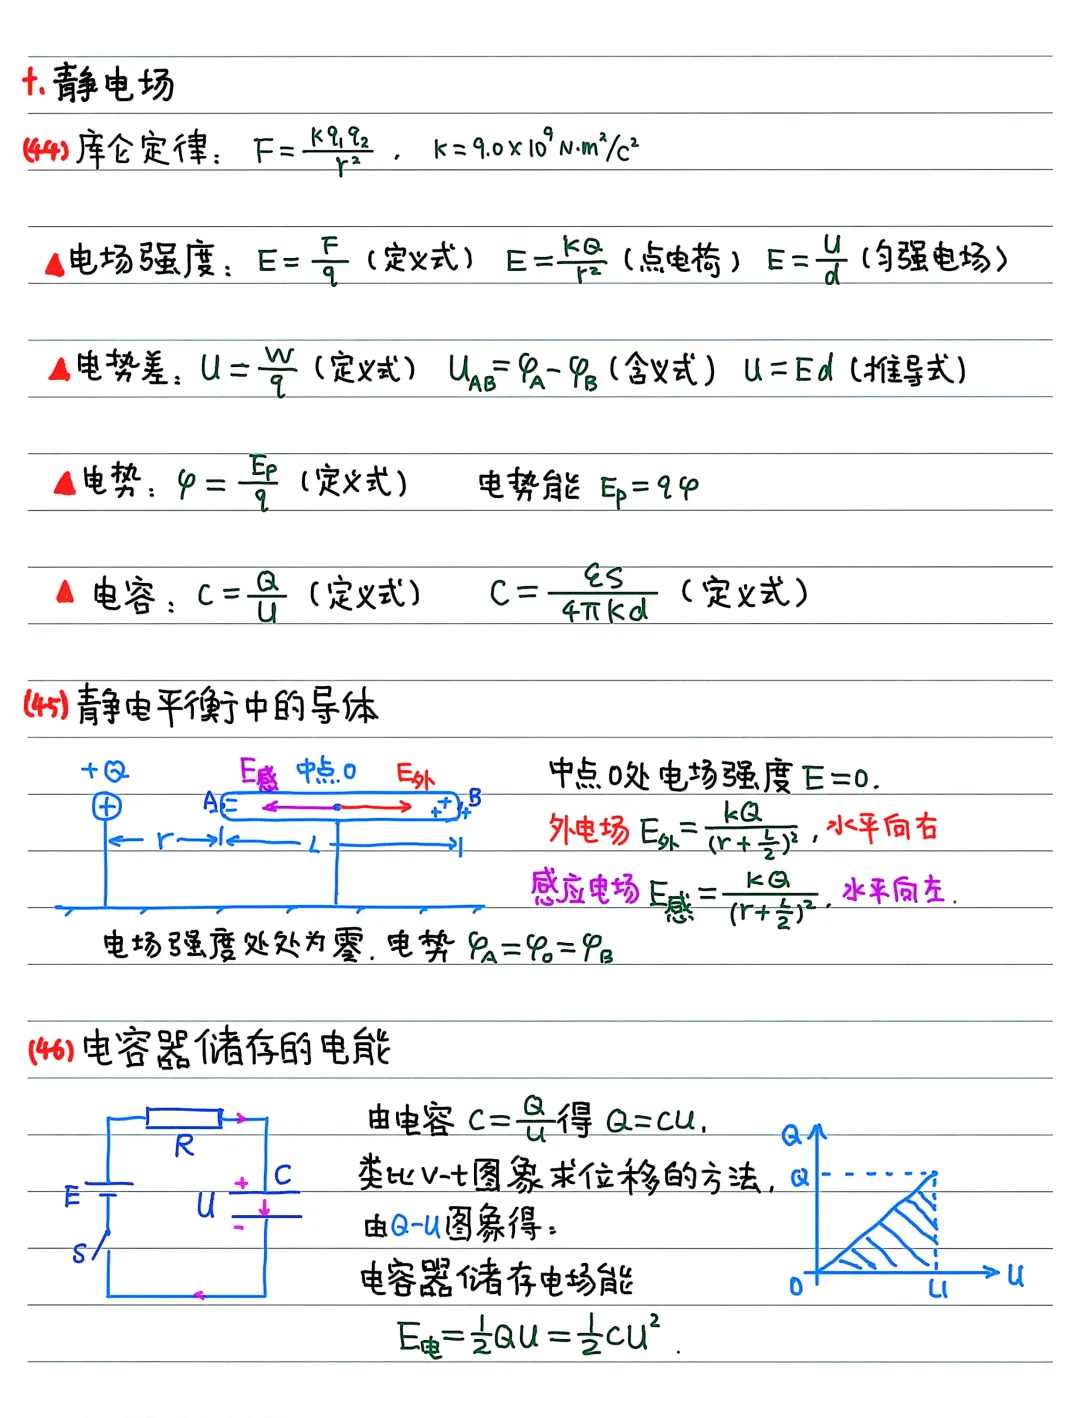 十.静电场
(44) 库仑定律: F=kq₁q₂/r², k=9.0×10⁹N·m²/C²
▲电场强度: E=F/q (定义式) E=kQ/r² (点电荷) E=U/d (匀强电场)
▲电势差: U=W/q (定义式) U_AB=φ_A-φ_B (含义式) U=Ed (推导式)
▲电势: φ=Ep/q (定义式) 电势能 Ep=qφ
▲电容: C=Q/U (定义式) C=εS/4πkd (定义式)
(45) 静电平衡中的导体
+Q E感 中点O E外
A B
r L
中点O处电场强度E=0.
外电场 E外=kQ/(r+L/2)², 水平向右
感应电场 E感=kQ/(r+L/2)², 水平向左.
电场强度处处为零. 电势 φ_A=φ_O=φ_B
(46) 电容器储存的电能
R
E
S
U
+
-
C
由电容 C=Q/U 得 Q=CU,
类比v-t图象求位移的方法,
由Q-U图象得:
电容器储存电场能
E电=½QU=½CU².
Q
Q
O U U